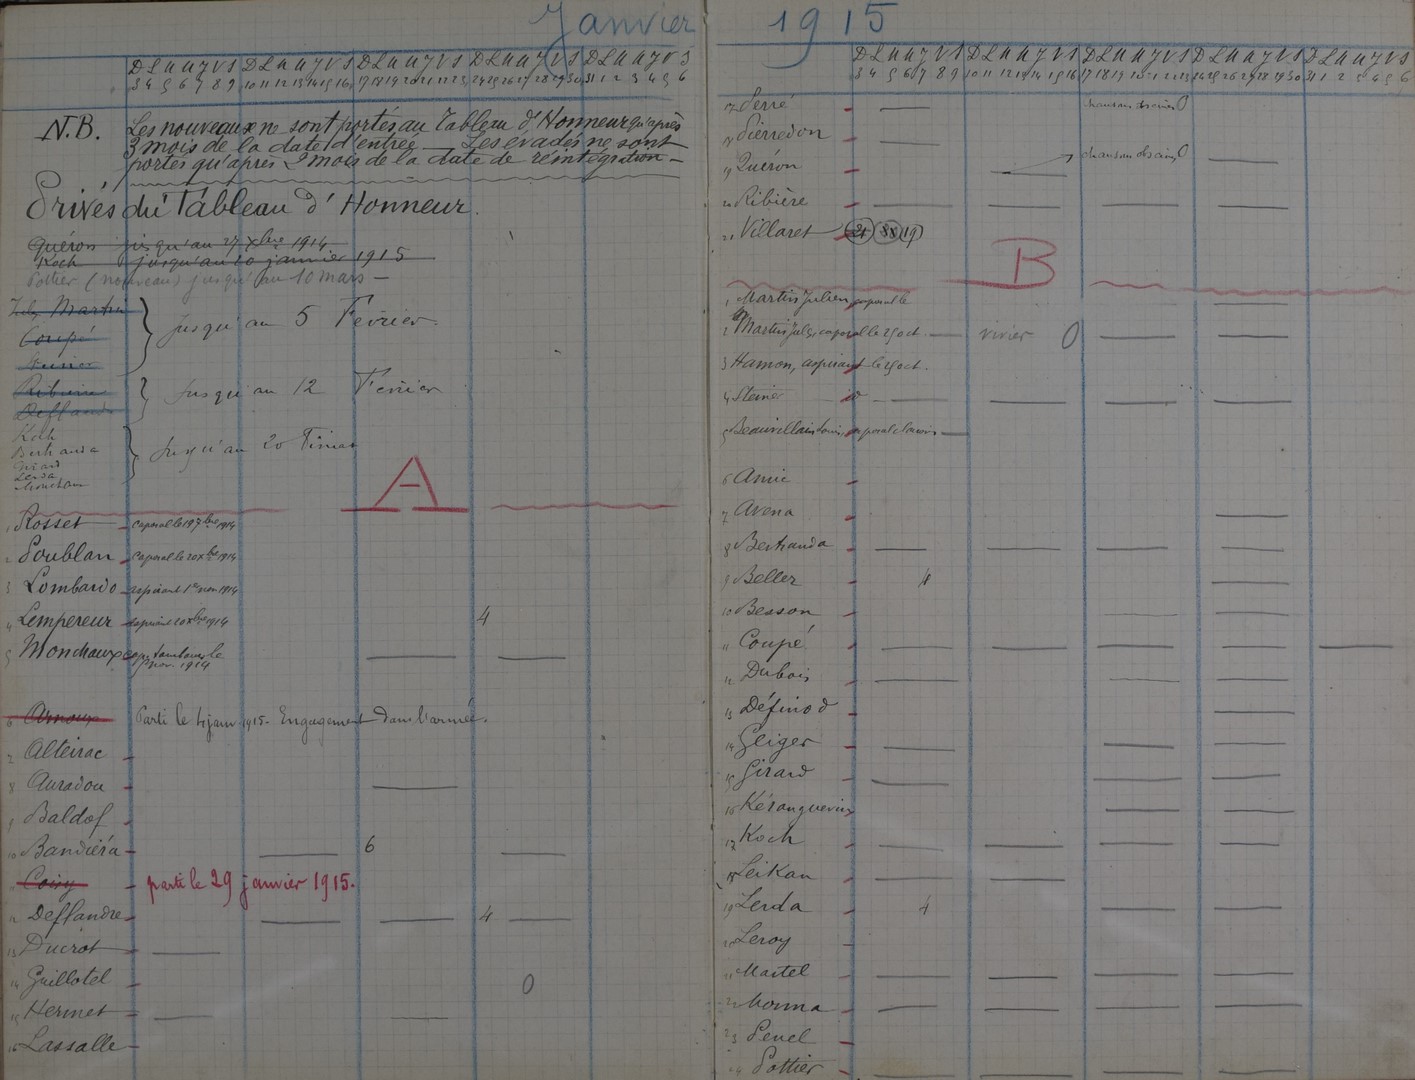 Janvier 1915
D L M M J V S D L M M J V S D L M M J V S D L M M J V S D L M M J V S
3 4 5 6 7 8 9 10 11 12 13 14 15 16 17 18 19 20 21 22 23 24 25 26 27 28 29 30 31 1 2 3 4 5 6
N.B. Les nouveaux ne sont portés au Tableau d'Honneur qu'après
3 mois de la date d'entrée — Les évadés ne sont
portés qu'après 2 mois de la date de réintégration —
Privés du Tableau d'Honneur.
Quéron jusqu'au 27 Xbre 1914
Koch jusqu'au 10 janvier 1915
Pottier (nouveau) jusqu'au 10 mars —
Martin
Coupé
jusqu'au 5 Février.
Ribière
Deflandre
jusqu'au 12 Février
Koch
Bertranda
Girard
Lerda
Monchaux
jusqu'au 20 Février
A
1 Rosset caporal le 19 7bre 1914
2 Poublan caporal le 20 Xbre 1914
3 Lombardo aspirant 1er nov 1914
4 Lempereur aspirant 20 Xbre 1914 4
5 Monchaux cap. tambour le
nov 1914
6 Arnoux Parti le 4 janv. 1915 - Engagement dans l'armée.
7 Alteirac
8 Auradou
9 Baldof
10 Bandiéra 6
11 Coiry parti le 29 janvier 1915.
12 Deflandre 4
13 Ducrot
14 Guillotel 0
15 Hermet
16 Lassalle
D L M M J V S D L M M J V S D L M M J V S D L M M J V S D L M M J V S
3 4 5 6 7 8 9 10 11 12 13 14 15 16 17 18 19 20 21 22 23 24 25 26 27 28 29 30 31 1 2 3 4 5 6
17 Perré 0
18 Pierredon
19 Quéron 0
20 Ribière
21 Villaret 19
B
1 Martin Julien, caporal le
2 Martin Jules, caporal le 25 oct. vivier 0
3 Hamon, aspirant le 25 oct.
4 Steiner
5 Beauvillain Louis, caporal clairon
6 Amic
7 Avena
8 Bertranda
9 Beller 4
10 Besson
11 Coupé
12 Dubois
13 Définod
14 Geiger
15 Girard
16 Kéranguevin
17 Koch
18 Leikan
19 Lerda 4
20 Leroy
21 Martel
22 Monna
23 Penel
24 Pottier